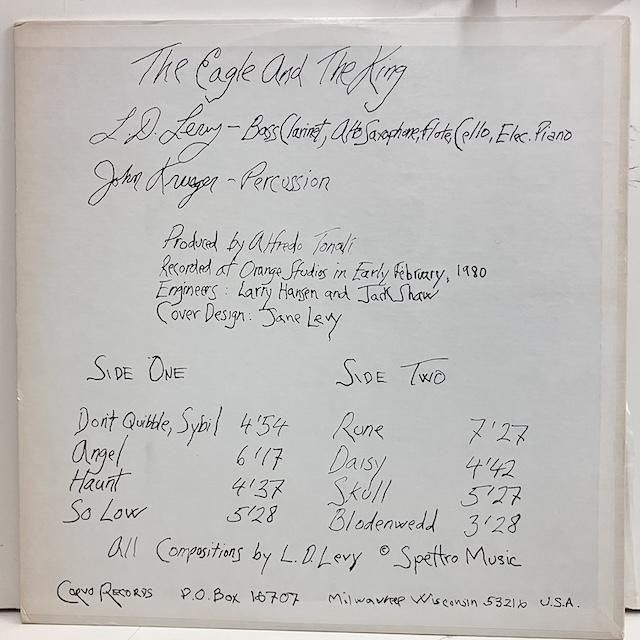 The Eagle And The King
L.D. Levy - Bass Clarinet, Alto Saxophone, Flote, Cello, Elec. Piano
John Kruger - Percussion
Produced by Alfredo Tonali
Recorded at Orange Studios in Early February, 1980
Engineers: Larry Hansen and Jack Shaw
Cover Design: Jane Levy
SIDE ONE SIDE TWO
Don't Quibble, Sybil 4'54 Rune 7'27
Angel 6'17 Daisy 4'42
Haunt 4'37 Skull 5'27
So Low 5'28 Blodenwedd 3'28
All Compositions by L.D. Levy © Spettro Music
CORVO RECORDS P.O. Box 16707 Milwaukee Wisconsin 53216 U.S.A.